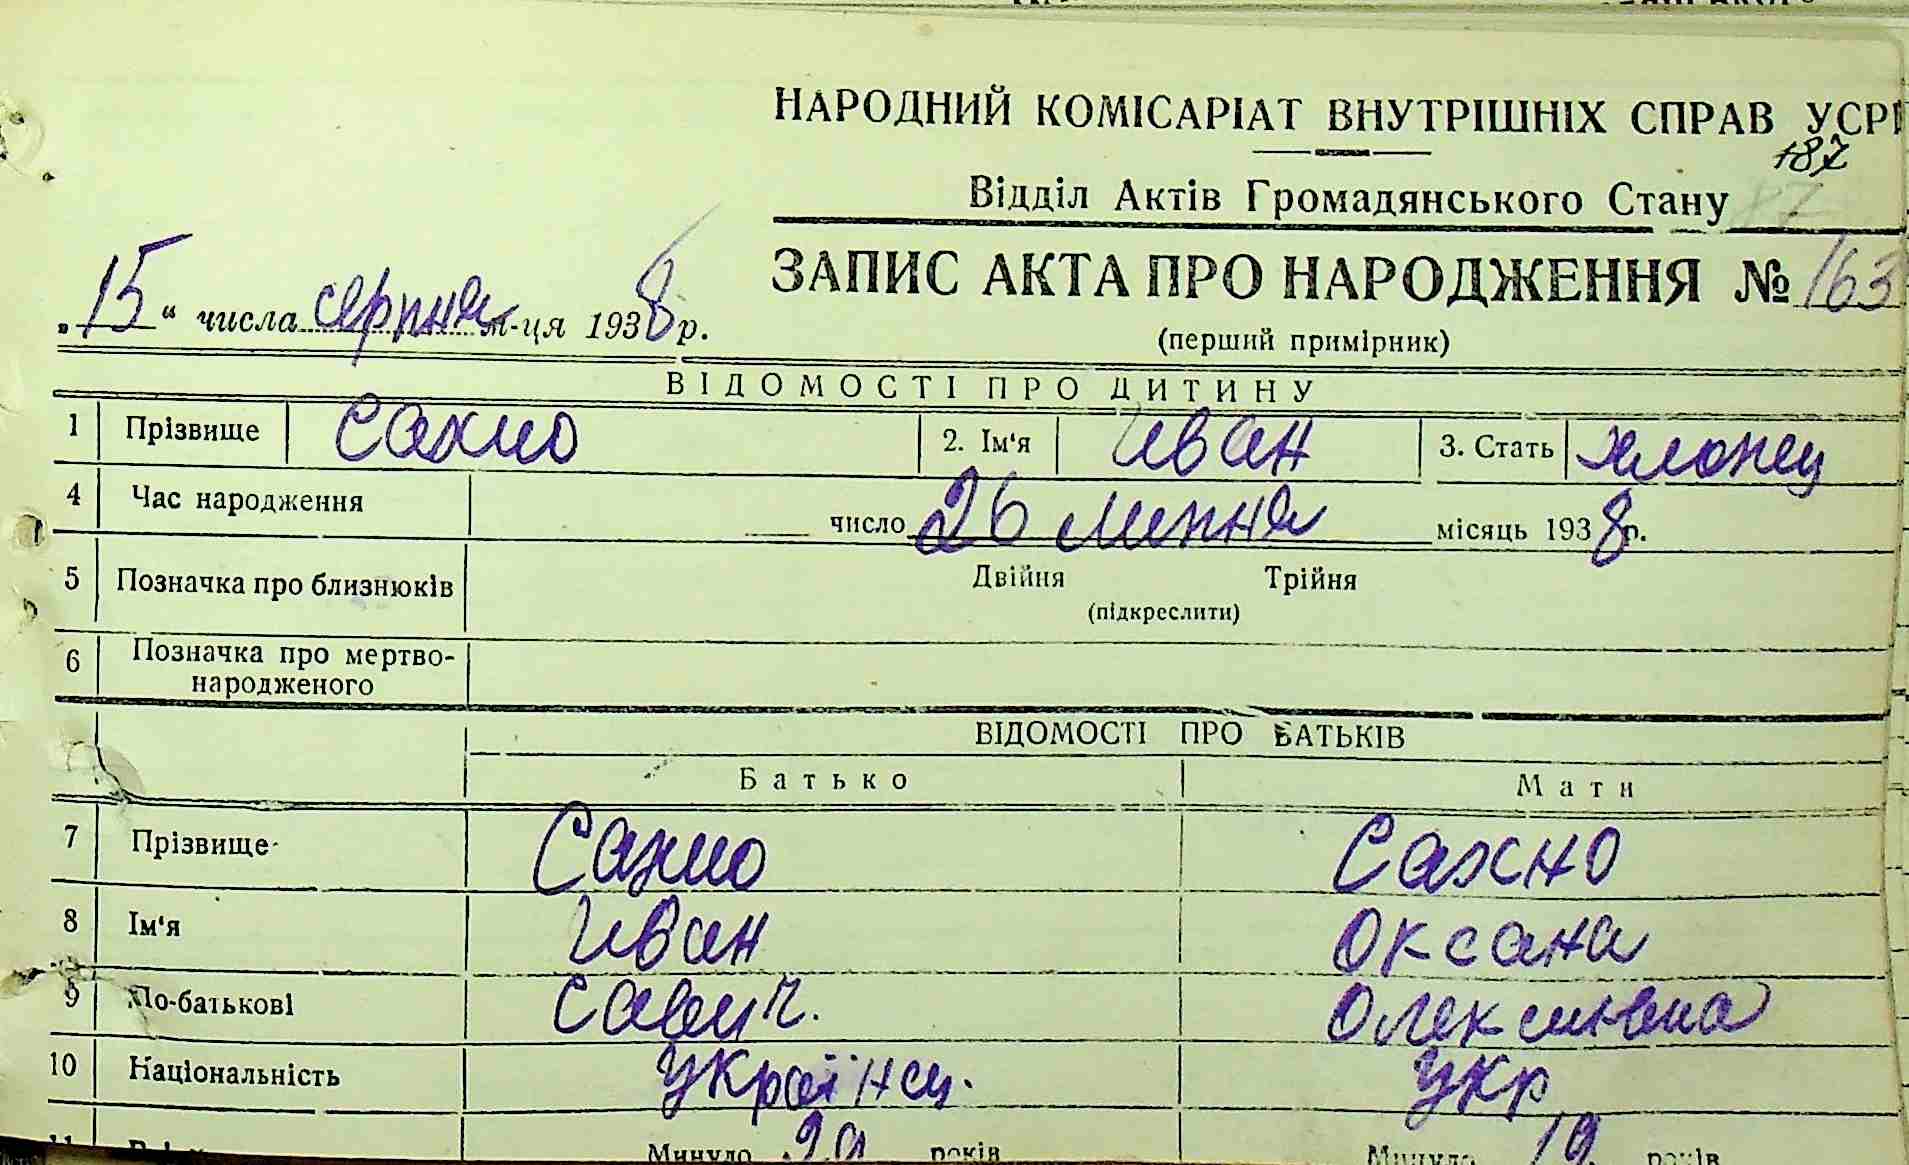 НАРОДНИЙ КОМІСАРІАТ ВНУТРІШНІХ СПРАВ УСРР
187
Відділ Актів Громадянського Стану
ЗАПИС АКТА ПРО НАРОДЖЕННЯ № 163
„15“ числа серпня м-ця 1938 р.
(перший примірник)
ВІДОМОСТІ ПРО ДИТИНУ
1 Прізвище Сахно 2. Ім'я Иван 3. Стать хлопец
4 Час народження число 26 липня місяць 1938 р.
5 Позначка про близнюків Двійня Трійня
(підкреслити)
6 Позначка про мертво-
народженого
ВІДОМОСТІ ПРО БАТЬКІВ
Батько Мати
7 Прізвище Сахно Сахно
8 Ім'я Иван Оксана
9 По-батькові Савич. Олексиївна
10 Національність Українец. Укр
11 Минуло років Минуло 19 років